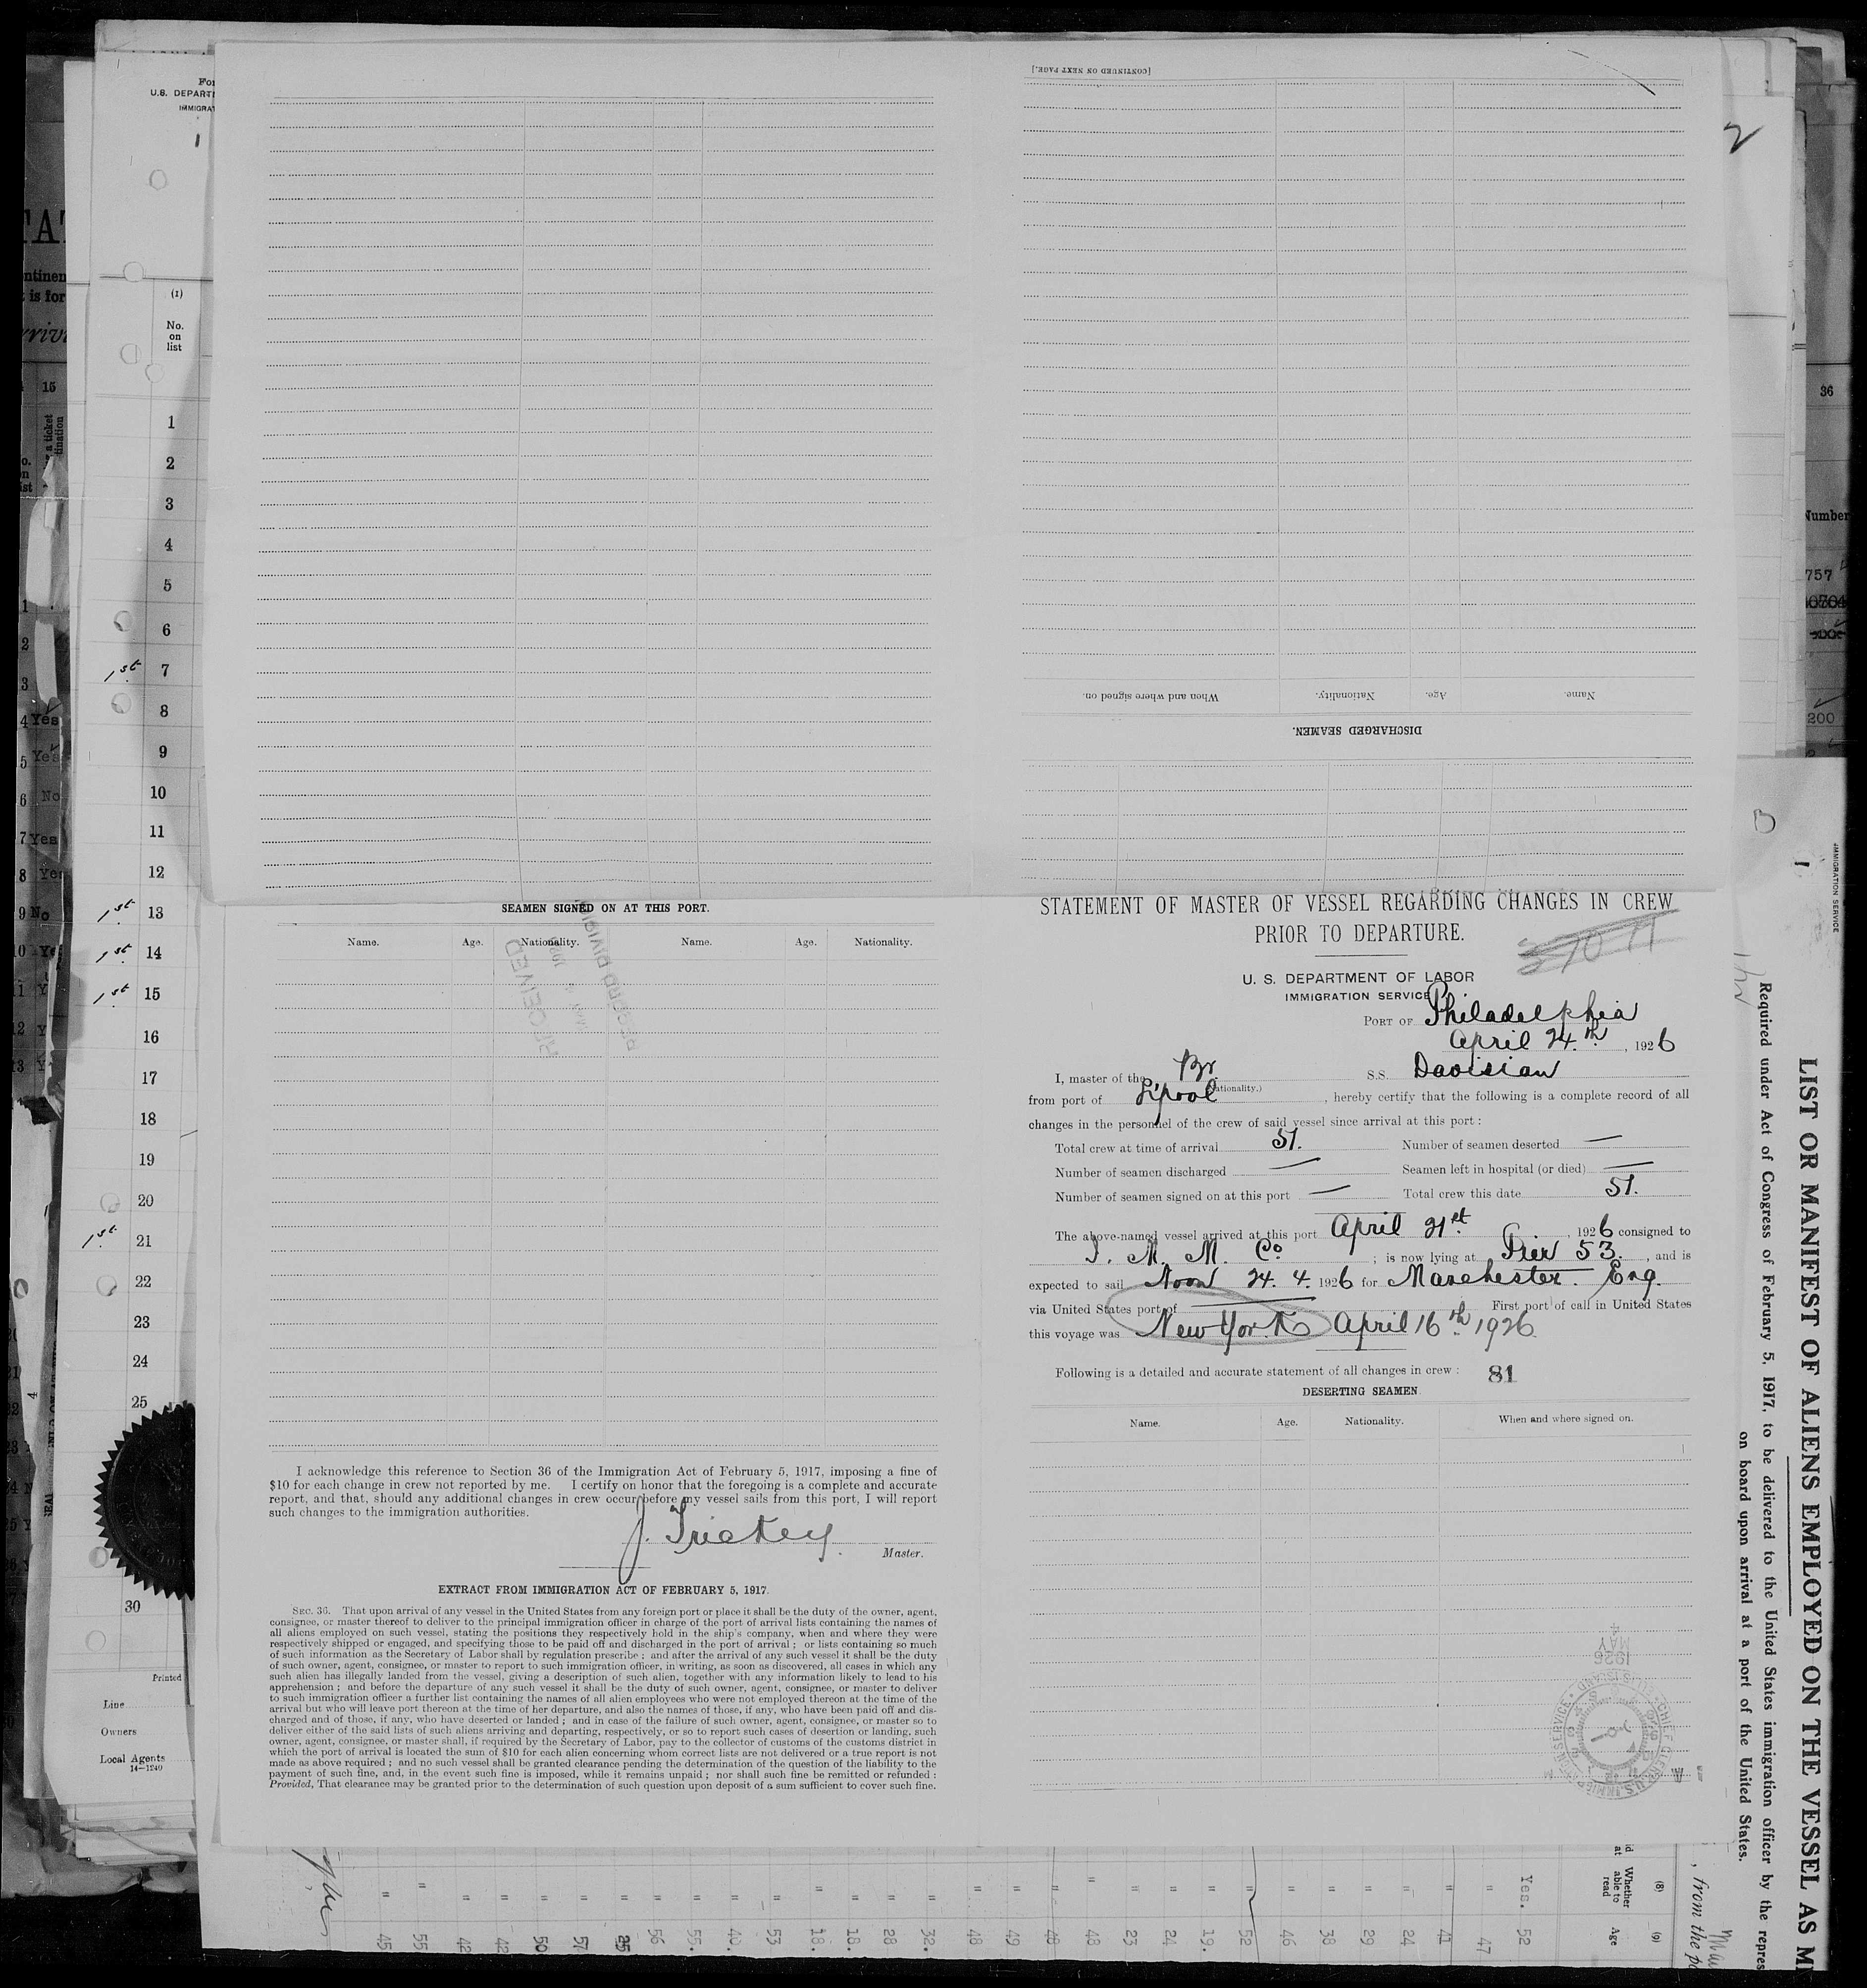 [CONTINUED ON NEXT PAGE.]
When and where signed on.
Nationality.
Age.
Name.
DISCHARGED SEAMEN.
2
For
U.S. DEPART
IMMIGRAT
1
(1)
No.
on
list
1
2
3
4
5
6
1st. 7
8
9
10
11
12
1st. 13
1st. 14
1st. 15
16
17
18
19
20
1st. 21
22
23
24
25
30
Printed
Line
Owners
Local Agents
14—1240
SEAMEN SIGNED ON AT THIS PORT.
Name. Age. Nationality. Name. Age. Nationality.
RECEIVED
RECORD DIVISION
I acknowledge this reference to Section 36 of the Immigration Act of February 5, 1917, imposing a fine of
$10 for each change in crew not reported by me. I certify on honor that the foregoing is a complete and accurate
report, and that, should any additional changes in crew occur before my vessel sails from this port, I will report
such changes to the immigration authorities.
J. Trickey.
Master.
EXTRACT FROM IMMIGRATION ACT OF FEBRUARY 5, 1917.
SEC. 36. That upon arrival of any vessel in the United States from any foreign port or place it shall be the duty of the owner, agent,
consignee, or master thereof to deliver to the principal immigration officer in charge of the port of arrival lists containing the names of
all aliens employed on such vessel, stating the positions they respectively hold in the ship's company, when and where they were
respectively shipped or engaged, and specifying those to be paid off and discharged in the port of arrival ; or lists containing so much
of such information as the Secretary of Labor shall by regulation prescribe ; and after the arrival of any such vessel it shall be the duty
of such owner, agent, consignee, or master to report to such immigration officer, in writing, as soon as discovered, all cases in which any
such alien has illegally landed from the vessel, giving a description of such alien, together with any information likely to lead to his
apprehension ; and before the departure of any such vessel it shall be the duty of such owner, agent, consignee, or master to deliver
to such immigration officer a further list containing the names of all alien employees who were not employed thereon at the time of the
arrival but who will leave port thereon at the time of her departure, and also the names of those, if any, who have been paid off and dis-
charged and of those, if any, who have deserted or landed ; and in case of the failure of such owner, agent, consignee, or master so to
deliver either of the said lists of such aliens arriving and departing, respectively, or so to report such cases of desertion or landing, such
owner, agent, consignee, or master shall, if required by the Secretary of Labor, pay to the collector of customs of the customs district in
which the port of arrival is located the sum of $10 for each alien concerning whom correct lists are not delivered or a true report is not
made as above required ; and no such vessel shall be granted clearance pending the determination of the question of the liability to the
payment of such fine, and, in the event such fine is imposed, while it remains unpaid ; nor shall such fine be remitted or refunded :
Provided, That clearance may be granted prior to the determination of such question upon deposit of a sum sufficient to cover such fine.
STATEMENT OF MASTER OF VESSEL REGARDING CHANGES IN CREW
PRIOR TO DEPARTURE.
U. S. DEPARTMENT OF LABOR
IMMIGRATION SERVICE
PORT OF Philadelphia
April 24.th, 1926
I, master of the Br. S.S. Davisian
(Nationality.)
from port of L'pool, hereby certify that the following is a complete record of all
changes in the personnel of the crew of said vessel since arrival at this port :
Total crew at time of arrival 51. Number of seamen deserted —
Number of seamen discharged — Seamen left in hospital (or died) —
Number of seamen signed on at this port — Total crew this date 51.
The above-named vessel arrived at this port April 21st, 1926 consigned to
I. M. M. Co. ; is now lying at Pier 53., and is
expected to sail Noon 24. 4. 1926 for Manchester. Eng.
via United States port of — First port of call in United States
this voyage was New York April 16th. 1926.
Following is a detailed and accurate statement of all changes in crew : 81
DESERTING SEAMEN.
Name. Age. Nationality. When and where signed on.
MAY
1926
LIST OR MANIFEST OF ALIENS EMPLOYED ON THE VESSEL AS M
Required under Act of Congress of February 5, 1917, to be delivered to the United States immigration officer by the repres
on board upon arrival at a port of the United States.
IMMIGRATION SERVICE
36
Number
757
200
(8)
Whether
able to
read
(9)
Age
, from the po
Yes.
45 55 42 42 50 57 25 56 55. 40. 53 18. 18. 28 32. 48 49 49 48 23 24 19. 52 46 38 29 24 41 47 52